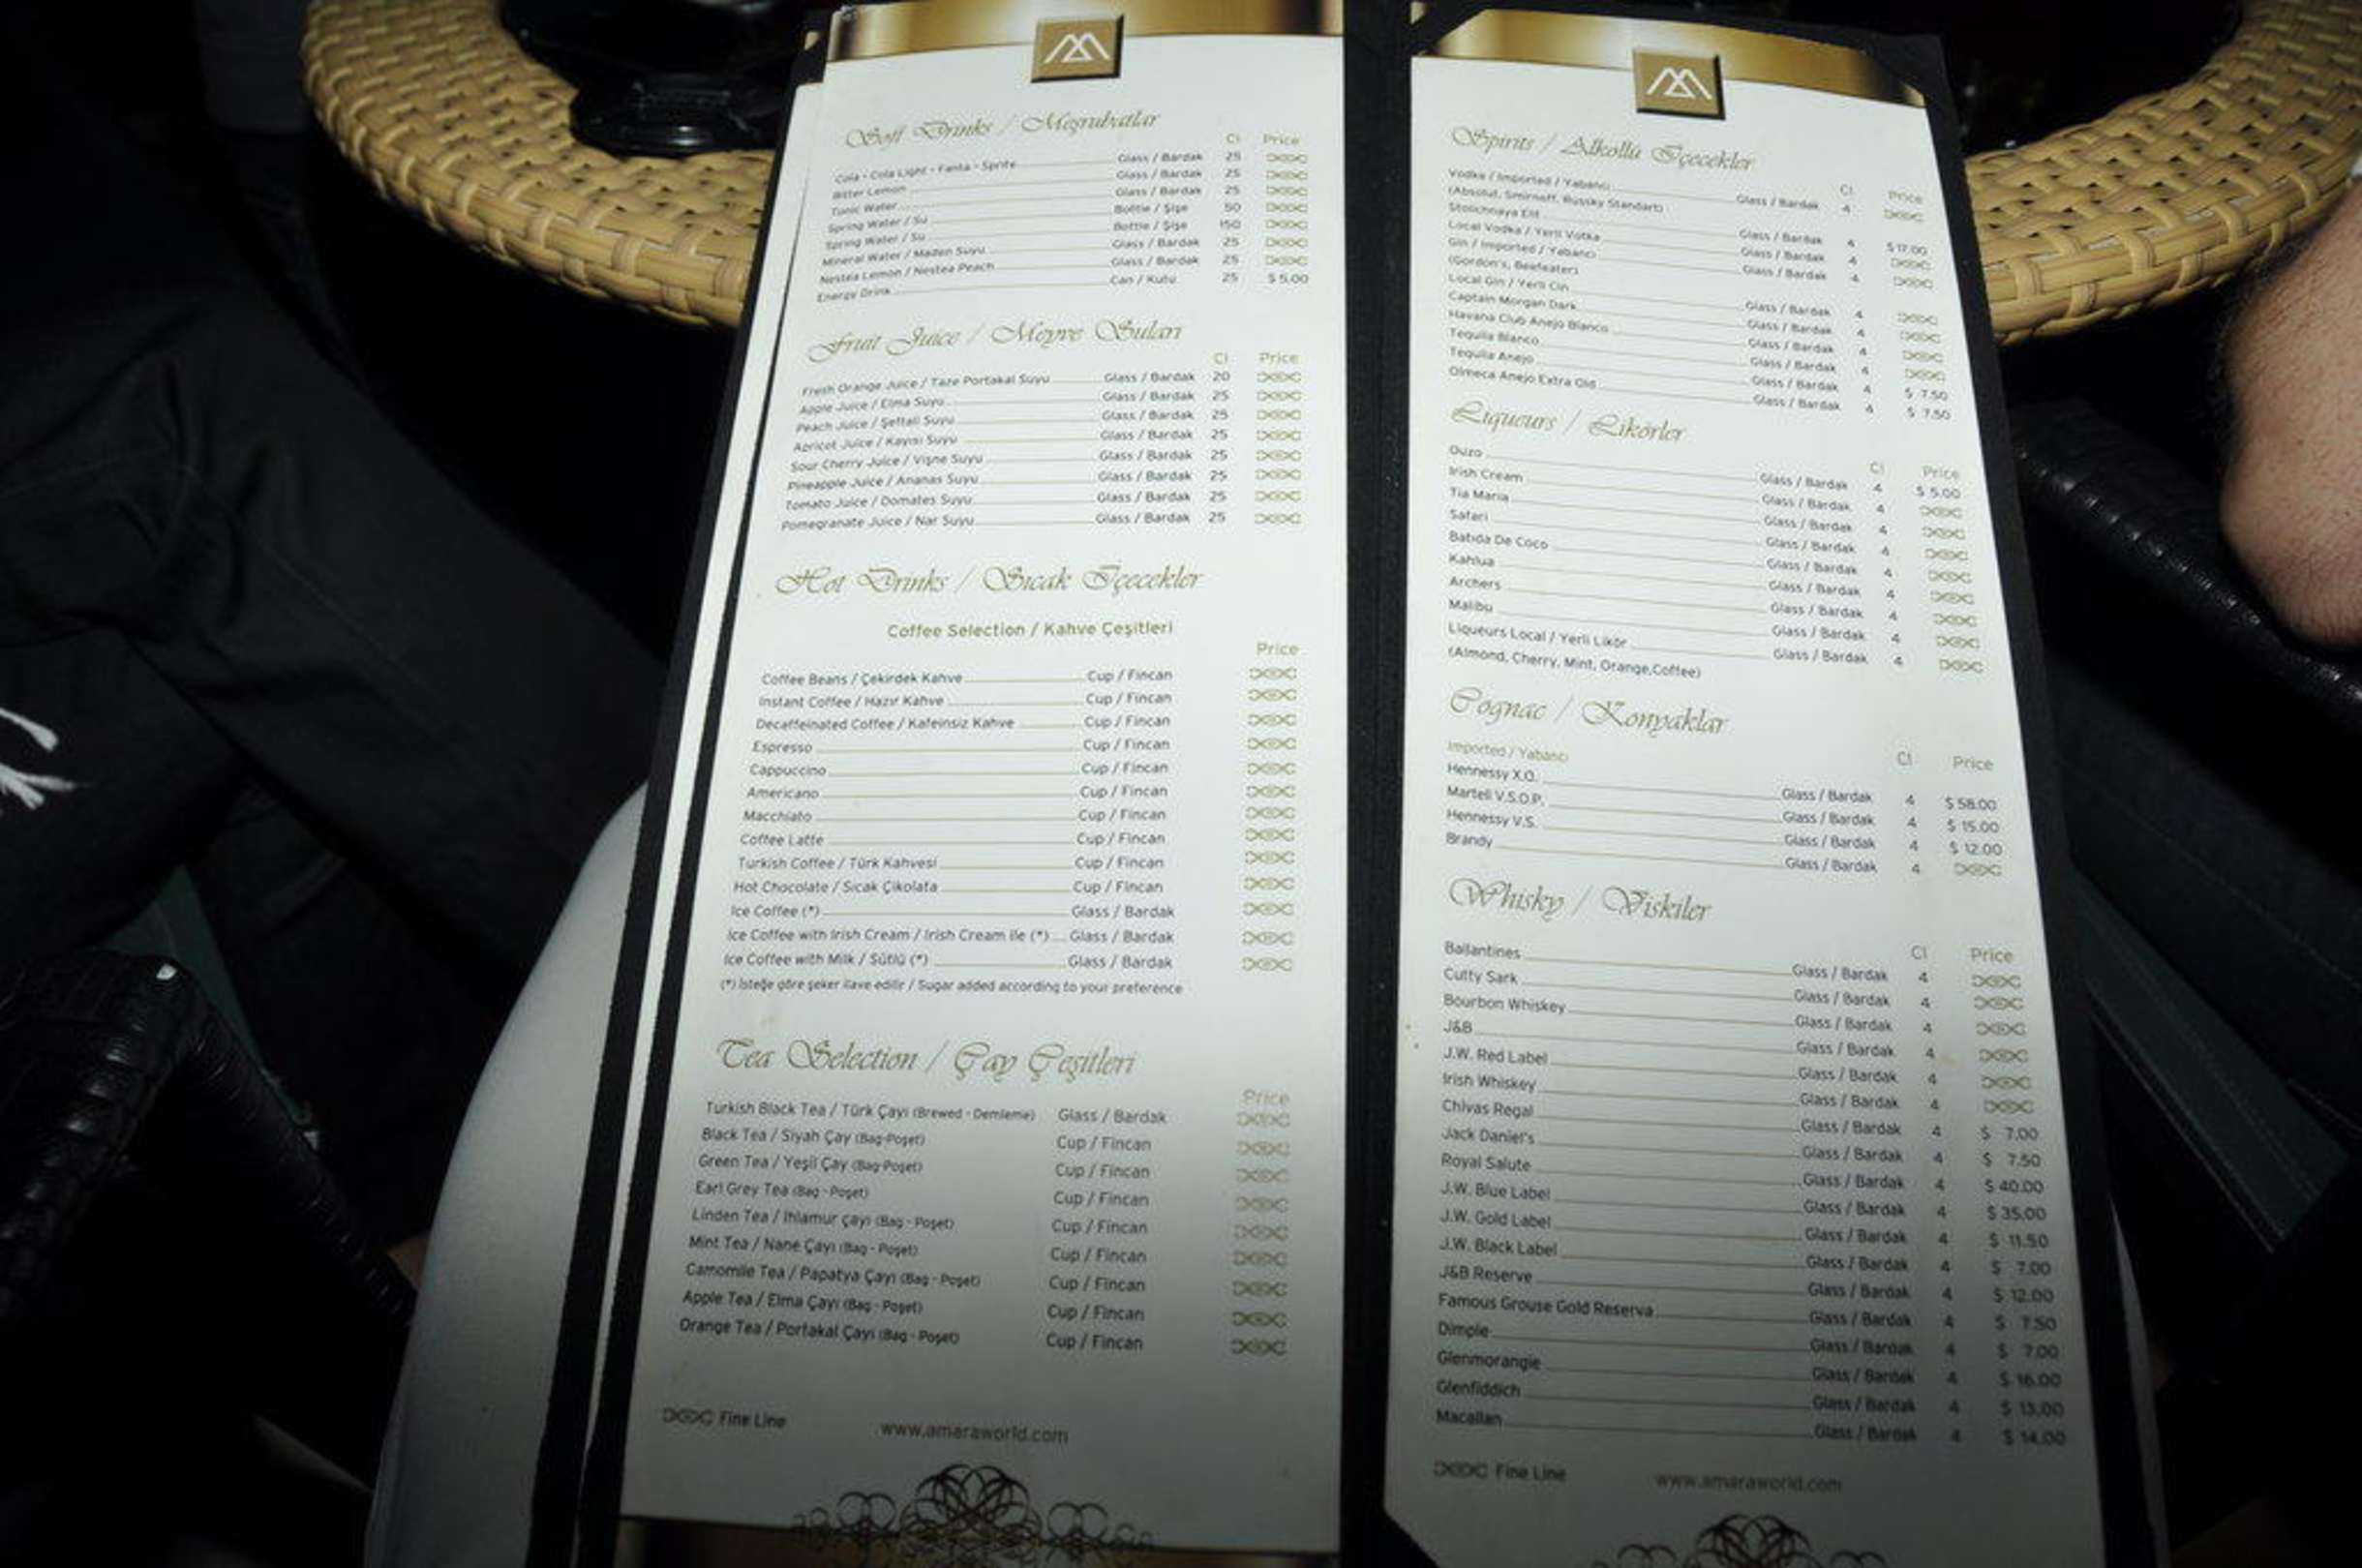 Soft Drinks / Meşrubatlar
Cl Price
Cola - Cola Light - Fanta - Sprite Glass / Bardak 25
Bitter Lemon Glass / Bardak 25
Tonic Water Glass / Bardak 25
Spring Water / Su Bottle / Şişe 50
Spring Water / Su Bottle / Şişe 150
Mineral Water / Maden Suyu Glass / Bardak 25
Nestea Lemon / Nestea Peach Glass / Bardak 25
Energy Drink Can / Kutu 25 $ 5.00
Fruit Juice / Meyve Suları
Cl Price
Fresh Orange Juice / Taze Portakal Suyu Glass / Bardak 20
Apple Juice / Elma Suyu Glass / Bardak 25
Peach Juice / Şeftali Suyu Glass / Bardak 25
Apricot Juice / Kayısı Suyu Glass / Bardak 25
Sour Cherry Juice / Vişne Suyu Glass / Bardak 25
Pineapple Juice / Ananas Suyu Glass / Bardak 25
Tomato Juice / Domates Suyu Glass / Bardak 25
Pomegranate Juice / Nar Suyu Glass / Bardak 25
Hot Drinks / Sıcak İçecekler
Coffee Selection / Kahve Çeşitleri
Price
Coffee Beans / Çekirdek Kahve Cup / Fincan
Instant Coffee / Hazır Kahve Cup / Fincan
Decaffeinated Coffee / Kafeinsiz Kahve Cup / Fincan
Espresso Cup / Fincan
Cappuccino Cup / Fincan
Americano Cup / Fincan
Macchiato Cup / Fincan
Coffee Latte Cup / Fincan
Turkish Coffee / Türk Kahvesi Cup / Fincan
Hot Chocolate / Sıcak Çikolata Cup / Fincan
Ice Coffee (*) Glass / Bardak
Ice Coffee with Irish Cream / Irish Cream ile (*) Glass / Bardak
Ice Coffee with Milk / Sütlü (*) Glass / Bardak
(*) İsteğe göre şeker ilave edilir / Sugar added according to your preference
Tea Selection / Çay Çeşitleri
Price
Turkish Black Tea / Türk Çayı (Brewed - Demleme) Glass / Bardak
Black Tea / Siyah Çay (Bag-Poşet) Cup / Fincan
Green Tea / Yeşil Çay (Bag-Poşet) Cup / Fincan
Earl Grey Tea (Bag - Poşet) Cup / Fincan
Linden Tea / Ihlamur çayı (Bag - Poşet) Cup / Fincan
Mint Tea / Nane Çayı (Bag - Poşet) Cup / Fincan
Camomile Tea / Papatya Çayı (Bag - Poşet) Cup / Fincan
Apple Tea / Elma Çayı (Bag - Poşet) Cup / Fincan
Orange Tea / Portakal Çayı (Bag - Poşet) Cup / Fincan
Fine Line www.amaraworld.com
Spirits / Alkollü İçecekler
Cl Price
Vodka / Imported / Yabancı Glass / Bardak 4
(Absolut, Smirnoff, Russky Standart)
Stolichnaya Elit Glass / Bardak 4 $ 17.00
Local Vodka / Yerli Votka Glass / Bardak 4
Gin / Imported / Yabancı Glass / Bardak 4
(Gordon's, Beefeater)
Local Gin / Yerli Cin Glass / Bardak 4
Captain Morgan Dark Glass / Bardak 4
Havana Club Anejo Blanco Glass / Bardak 4
Tequila Blanco Glass / Bardak 4
Tequila Anejo Glass / Bardak 4 $ 7.50
Olmeca Anejo Extra Old Glass / Bardak 4 $ 7.50
Liqueurs / Likörler
Cl Price
Ouzo Glass / Bardak 4 $ 5.00
Irish Cream Glass / Bardak 4
Tia Maria Glass / Bardak 4
Safari Glass / Bardak 4
Batida De Coco Glass / Bardak 4
Kahlua Glass / Bardak 4
Archers Glass / Bardak 4
Malibu Glass / Bardak 4
Liqueurs Local / Yerli Likör Glass / Bardak 4
(Almond, Cherry, Mint, Orange,Coffee)
Cognac / Konyaklar
Imported / Yabancı Cl Price
Hennessy X.O. Glass / Bardak 4 $ 58.00
Martell V.S.O.P. Glass / Bardak 4 $ 15.00
Hennessy V.S. Glass / Bardak 4 $ 12.00
Brandy Glass / Bardak 4
Whisky / Viskiler
Cl Price
Ballantines Glass / Bardak 4
Cutty Sark Glass / Bardak 4
Bourbon Whiskey Glass / Bardak 4
J&B Glass / Bardak 4
J.W. Red Label Glass / Bardak 4
Irish Whiskey Glass / Bardak 4
Chivas Regal Glass / Bardak 4 $ 7.00
Jack Daniel's Glass / Bardak 4 $ 7.50
Royal Salute Glass / Bardak 4 $ 40.00
J.W. Blue Label Glass / Bardak 4 $ 35.00
J.W. Gold Label Glass / Bardak 4 $ 11.50
J.W. Black Label Glass / Bardak 4 $ 7.00
J&B Reserve Glass / Bardak 4 $ 12.00
Famous Grouse Gold Reserva Glass / Bardak 4 $ 7.50
Dimple Glass / Bardak 4 $ 7.00
Glenmorangie Glass / Bardak 4 $ 16.00
Glenfiddich Glass / Bardak 4 $ 13.00
Macallan Glass / Bardak 4 $ 14.00
Fine Line www.amaraworld.com